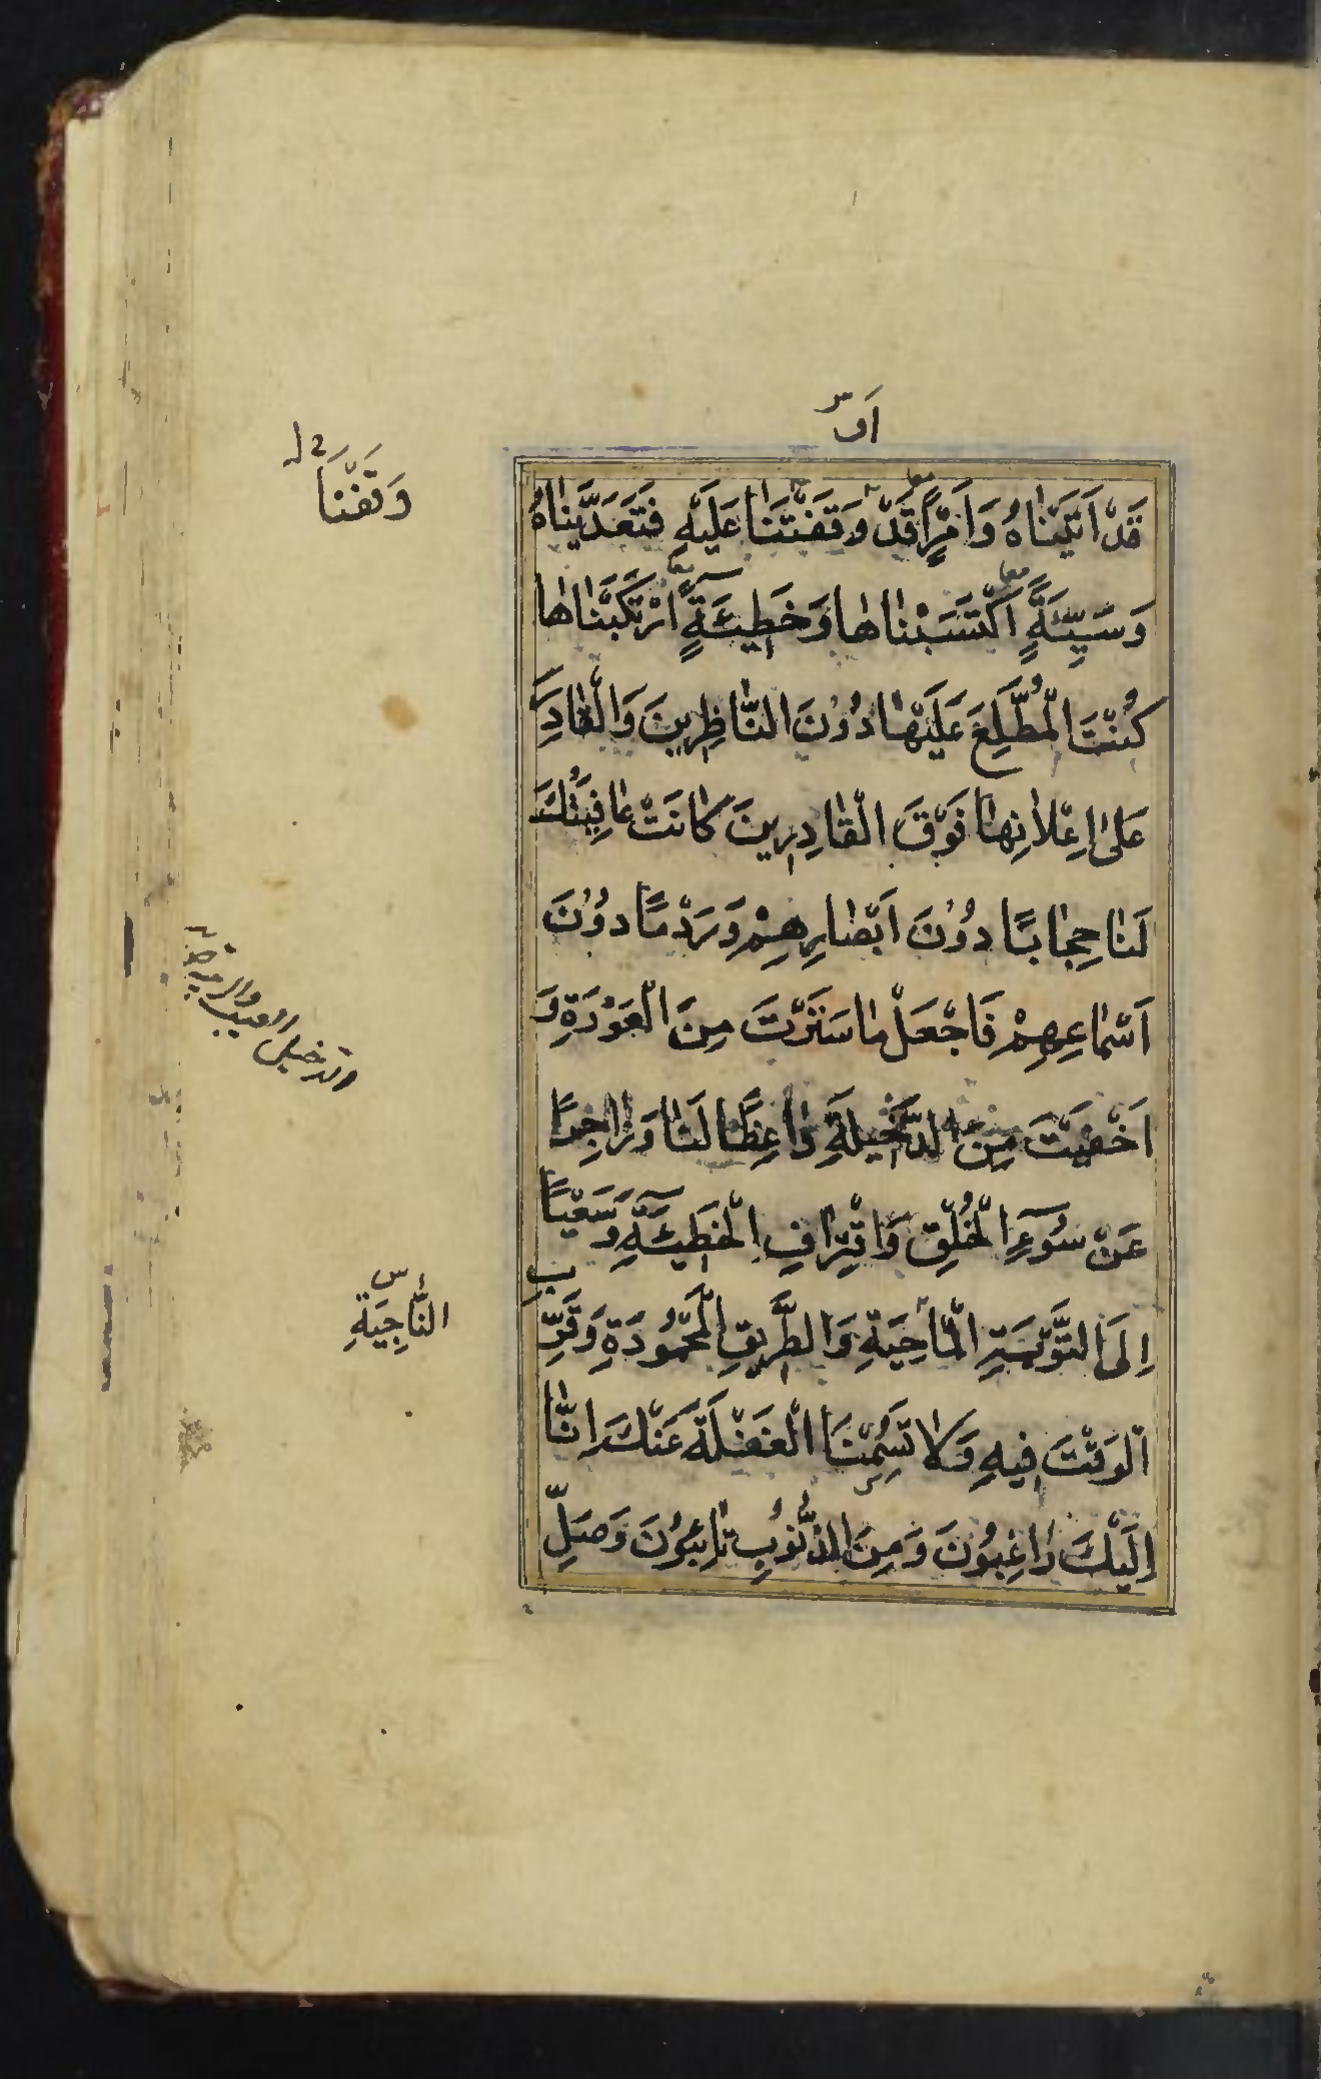 اَو س
قَدْ اَتَيْنَاهُ وَاَمْرٍ قَدْ وَقَفْتَنَا عَلَيْهِ فَتَعَدَّيْنَاهُ
وَسَيِّئَةٍ اَكْتَسَبْنَاهَا وَخَطِيئَةٍ اَرْتَكَبْنَاهَا
كُنْتَ الْمُطَّلِعَ عَلَيْهَا دُوْنَ النَّاظِرِينَ وَالْقَادِرَ
عَلَى اِعْلَانِهَا فَوْقَ الْقَادِرِينَ كَانَتْ عَافِيَتُكَ
لَنَا حِجَابًا دُوْنَ اَبْصَارِهِمْ وَرَدْمًا دُوْنَ
اَسْمَاعِهِمْ فَاجْعَلْ مَا سَتَرْتَ مِنَ الْعَوْرَةِ وَ
اَخْفَيْتَ مِنَ الدَّخِيلَةِ وَاعِظًا لَنَا وَزَاجِرًا
عَنْ سُوْءِ الْخُلْقِ وَاقْتِرَافِ الْخَطِيئَةِ وَسَعْيًا
اِلَى التَّوْبَةِ الْمَاحِيَةِ وَالطَّرِيقِ الْمَحْمُودَةِ وَقَرِّبِ
الْوَقْتَ فِيهِ وَلَا تَسُمْنَا الْغَفْلَةَ عَنْكَ اِنَّا
اِلَيْكَ رَاغِبُونَ وَمِنَ الذُّنُوبِ تَائِبُونَ وَصَلِّ
وَقَفْنَا
الدخيل العيب والريبة
النَّاجِيَةِ س